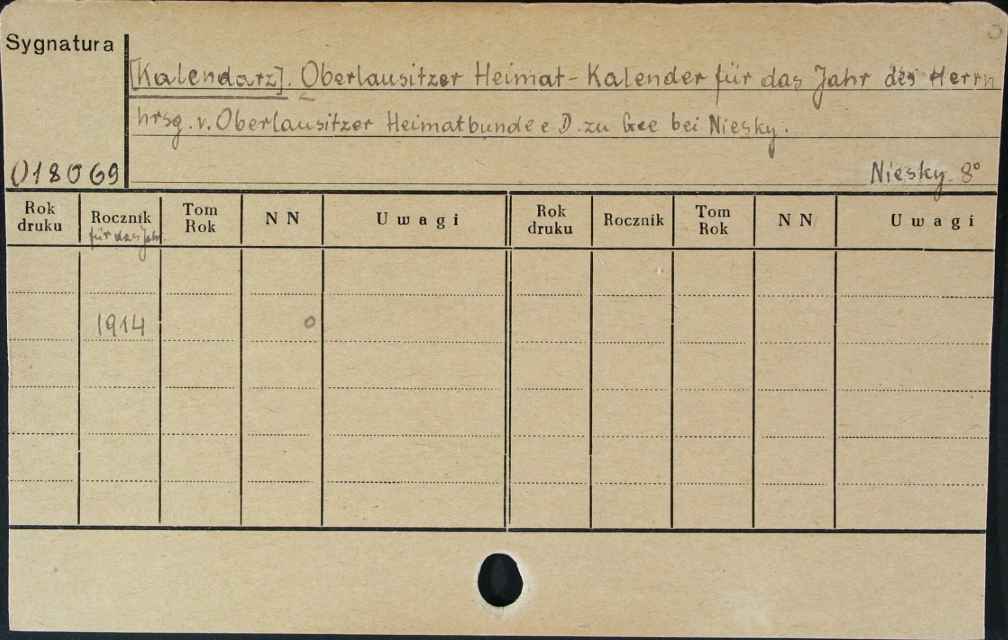 Sygnatura
[Kalendarz]. Oberlausitzer Heimat-Kalender für das Jahr des Herrn
hrsg. v. Oberlausitzer Heimatbunde e D. zu Gee bei Niesky.
018069
Niesky. 8°
Rok druku Rocznik Tom Rok N N Uwagi Rok druku Rocznik Tom Rok N N Uwagi
für das Jahr
1914 0